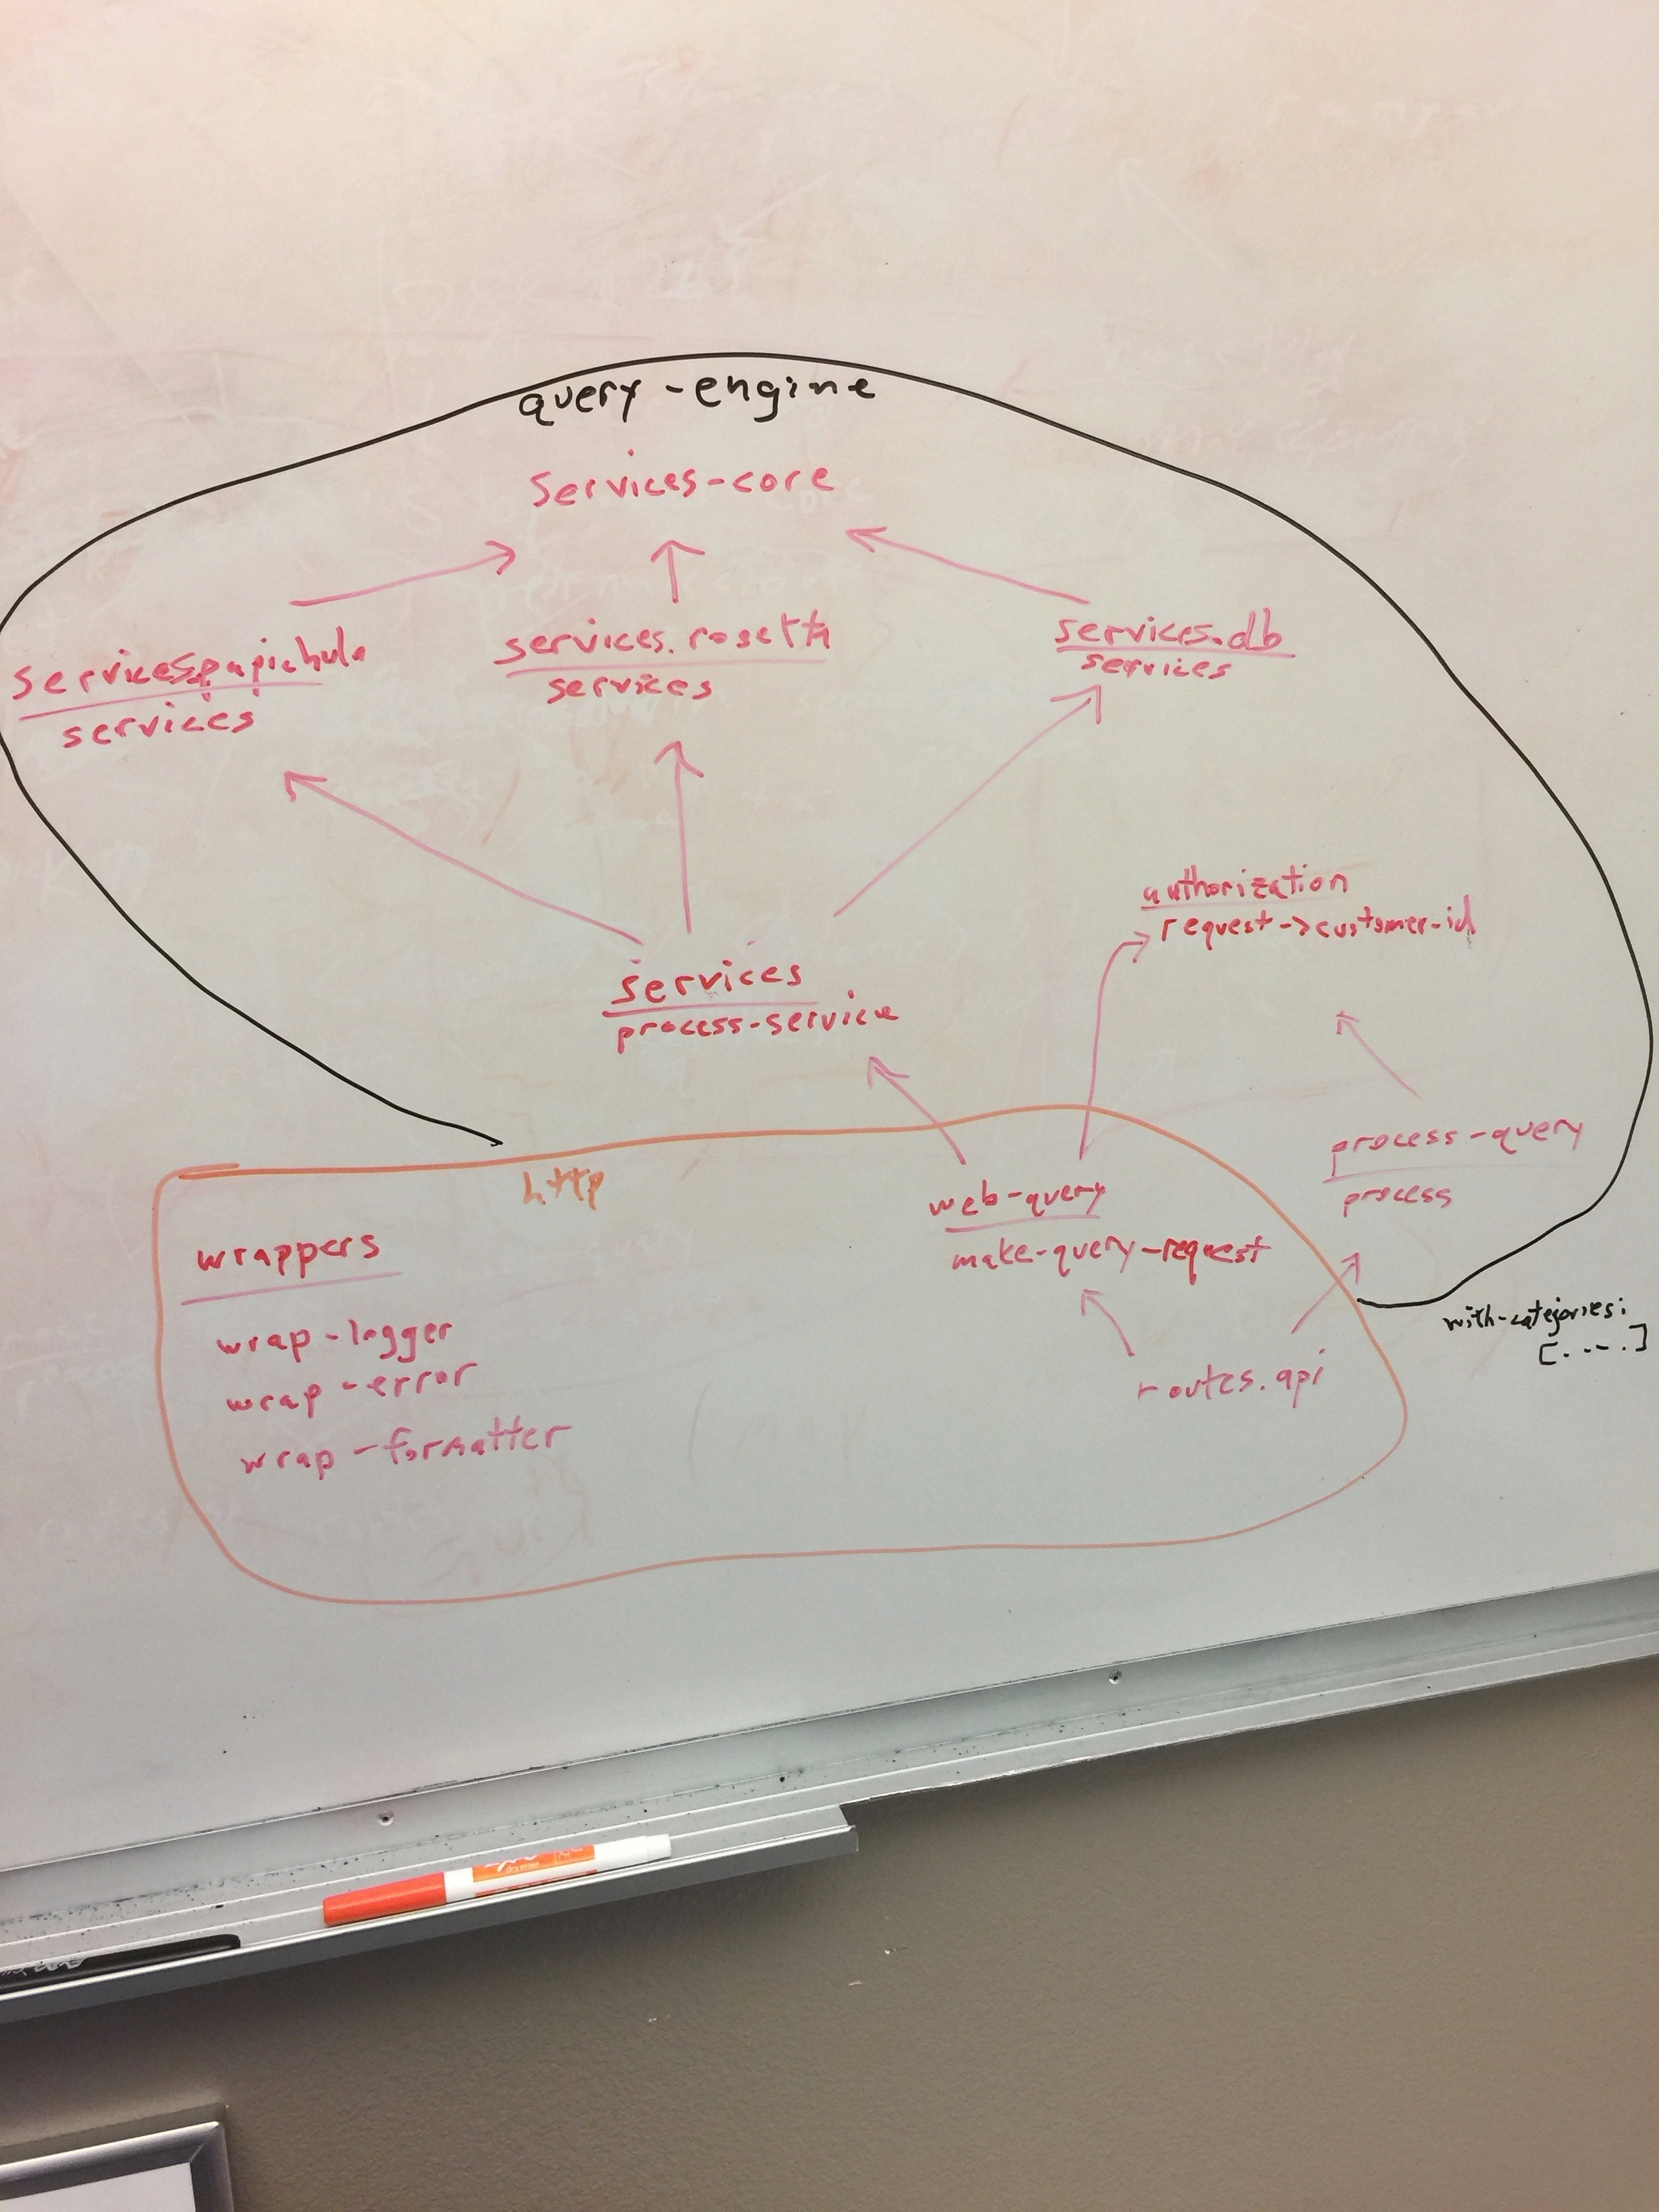 query-engine
services-core
services.papichulo
services
services.rosetta
services
services.db
services
authorization
request->customer-id
services
process-service
process-query
process
http
web-query
make-query-request
wrappers
wrap-logger
wrap-error
wrap-formatter
routes.api
with-categories:
[....]